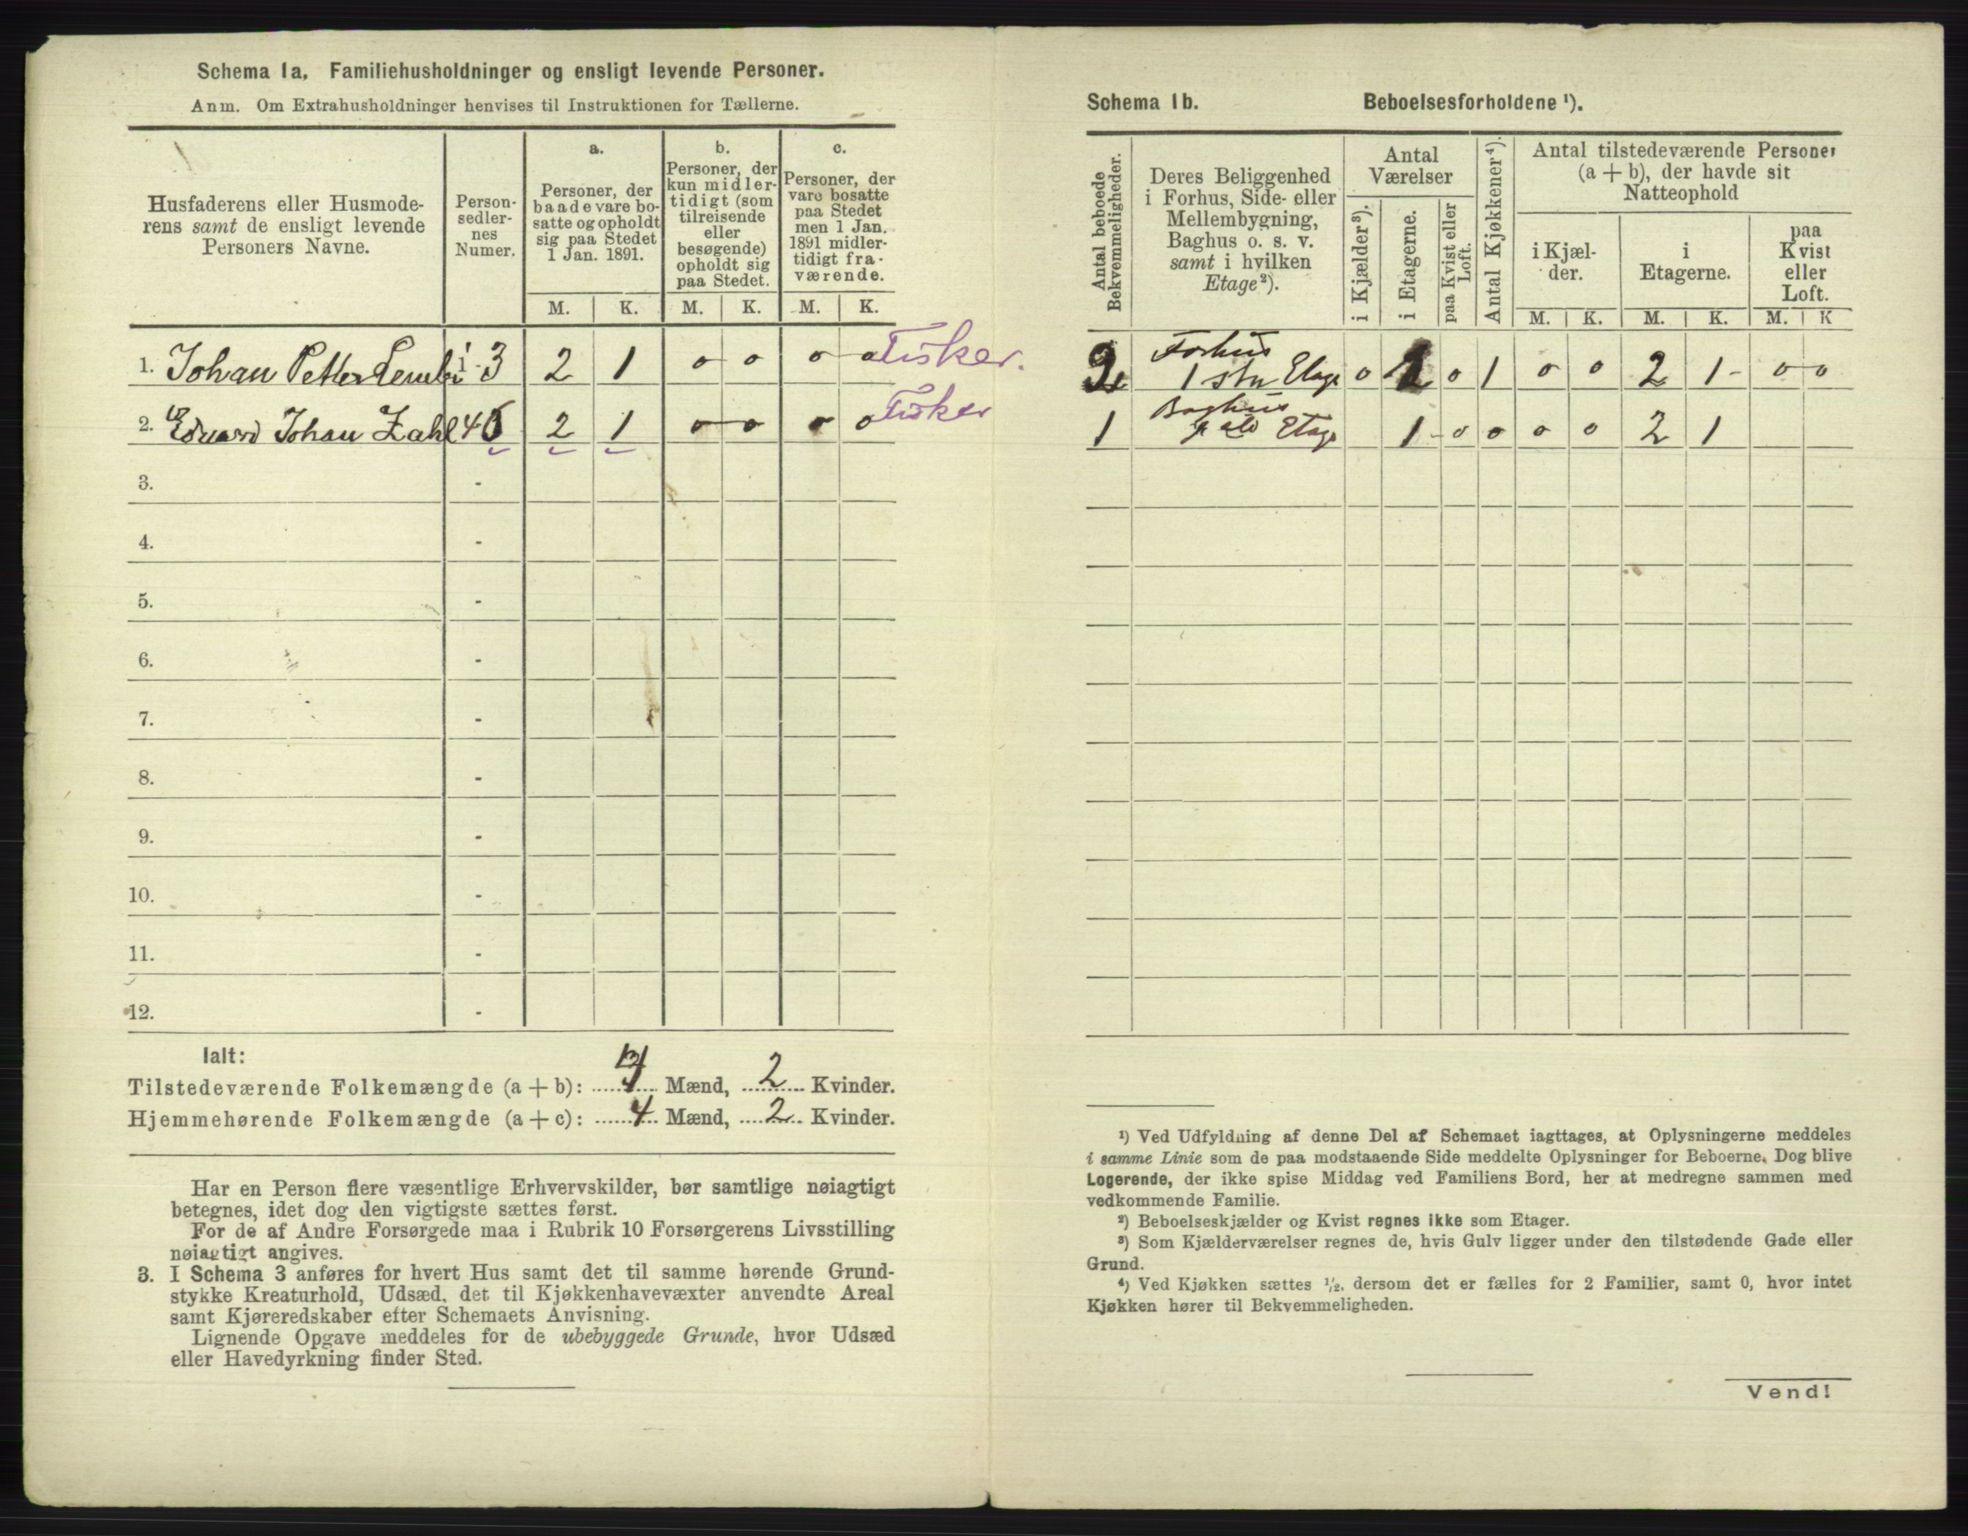 Schema 1a. Familiehusholdninger og ensligt levende Personer.
Anm. Om Extrahusholdninger henvises til Instruktionen for Tællerne.
Husfaderens eller Husmode-
rens samt de ensligt levende
Personers Navne.
Person-
sedler-
nes
Numer.
a.
Personer, der
baade vare bo-
satte og opholdt
sig paa Stedet
1 Jan. 1891.
b.
Personer, der
kun midler-
tidigt (som
tilreisende
eller
besøgende)
opholdt sig
paa Stedet.
c.
Personer, der
vare bosatte
paa Stedet
men 1 Jan.
1891 midler-
tidigt fra-
værende.
M. K. M. K. M. K.
1. Johan Petter 1-3 2 1 o o o o Fisker.
2. Eduard Johan Zahl 4 2 1 o o o o Fisker
3. -
4. -
5. -
6. -
7. -
8. -
9. -
10. -
11. -
12. -
Ialt:
Tilstedeværende Folkemængde (a + b): 4 Mænd, 2 Kvinder.
Hjemmehørende Folkemængde (a + c): 4 Mænd, 2 Kvinder.
Har en Person flere væsentlige Erhvervskilder, bør samtlige nøiagtigt
betegnes, idet dog den vigtigste sættes først.
For de af Andre Forsørgede maa i Rubrik 10 Forsørgerens Livsstilling
nøiagtigt angives.
3. I Schema 3 anføres for hvert Hus samt det til samme hørende Grund-
stykke Kreaturhold, Udsæd, det til Kjøkkenhavevæxter anvendte Areal
samt Kjøreredskaber efter Schemaets Anvisning.
Lignende Opgave meddeles for de ubebyggede Grunde, hvor Udsæd
eller Havedyrkning finder Sted.
Schema 1b. Beboelsesforholdene ¹).
Antal beboede
Bekvemmeligheder.
Deres Beliggenhed
i Forhus, Side- eller
Mellembygning,
Baghus o. s. v.
samt i hvilken
Etage²).
Antal
Værelser
i Kjælder³).
i Etagerne.
paa Kvist eller
Loft.
Antal Kjøkkener⁴).
Antal tilstedeværende Personer
(a + b), der havde sit
Natteophold
i Kjæl-
der.
i
Etagerne.
paa
Kvist
eller
Loft.
M. K. M. K. M. K
Forhus
1 ste Etage o o 1 o o 2 1 - o o
Baghus
1 Etage 1 - o o o o 2 1
¹) Ved Udfyldning af denne Del af Schemaet iagttages, at Oplysningerne meddeles
i samme Linie som de paa modstaaende Side meddelte Oplysninger for Beboerne. Dog blive
Logerende, der ikke spise Middag ved Familiens Bord, her at medregne sammen med
vedkommende Familie.
²) Beboelseskjælder og Kvist regnes ikke som Etager.
³) Som Kjælderværelser regnes de, hvis Gulv ligger under den tilstødende Gade eller
Grund.
⁴) Ved Kjøkken sættes ½, dersom det er fælles for 2 Familier, samt 0, hvor intet
Kjøkken hører til Bekvemmeligheden.
Vend!